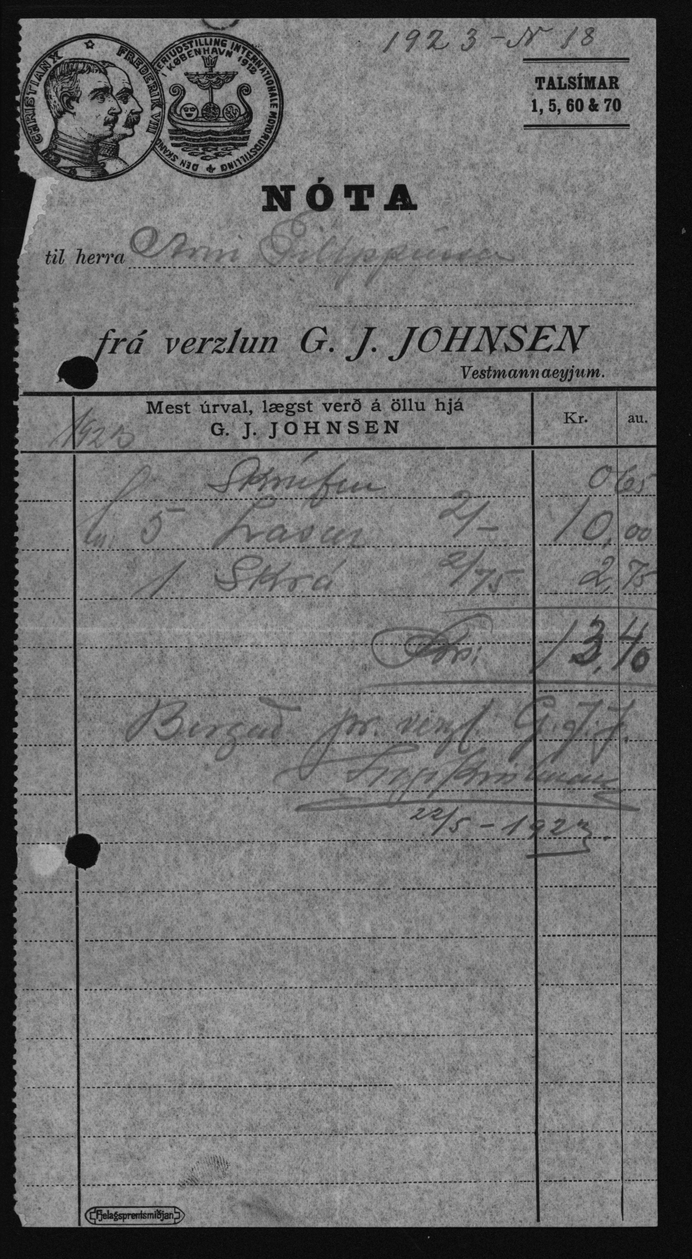 1923 - N 18
CHRISTIAN X
FREDERIK VIII
DEN SKAND FISKERIUDSTILLING INTERNATIONALE MOTORUDSTILLING
I KØBENHAVN 1912
TALSÍMAR
1, 5, 60 & 70
NÓTA
til herra Arni Filippusson
frá verzlun G. J. JOHNSEN
Vestmannaeyjum.
1923
Mest úrval, lægst verð á öllu hjá
G. J. JOHNSEN
Kr. au.
Skrúfur 0 65
5 Lásar 2/- 10,00
1 Skrá 2/75 2,75
13,40
Borgað pr. verzl. G. J. J.
22/5 - 1923.
Fjelagsprentsmiðjan